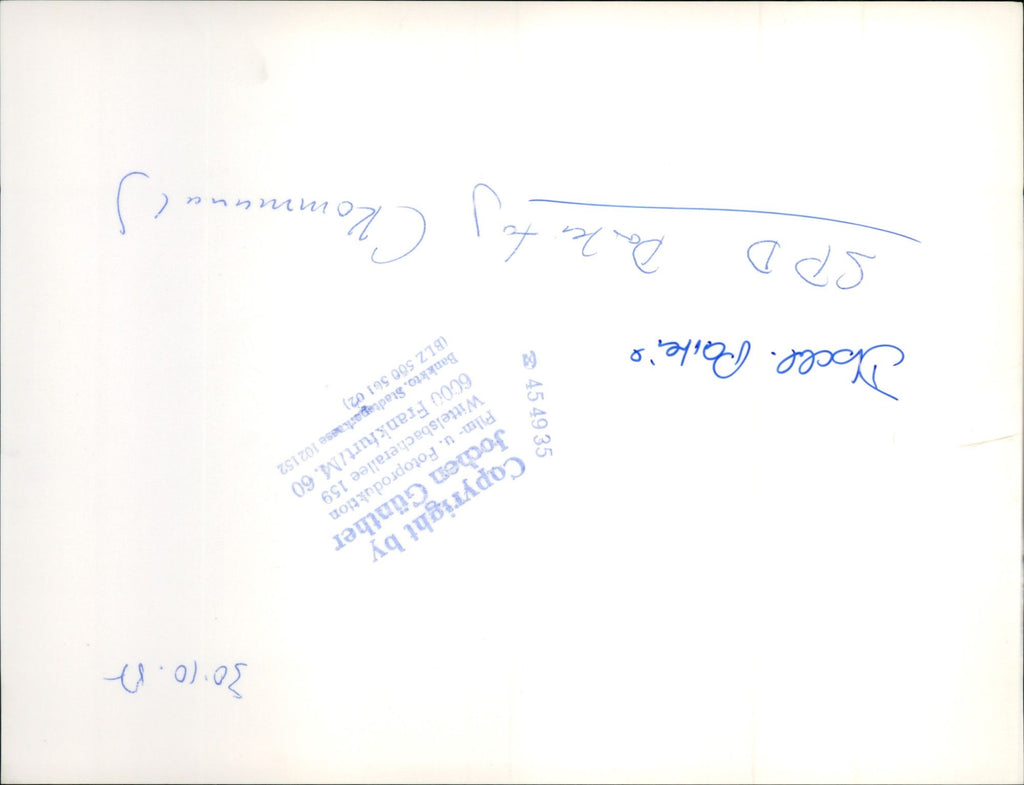 30.10.87
Copyright by
Jochen Günther
Film- u. Fotoproduktion
Wittelsbacherallee 159
6000 Frankfurt/M. 60
Bankkto. Stadtsparkasse 102152
(BLZ 500 561 02)
☎ 454935
SPD Parteitag (Kommunal)